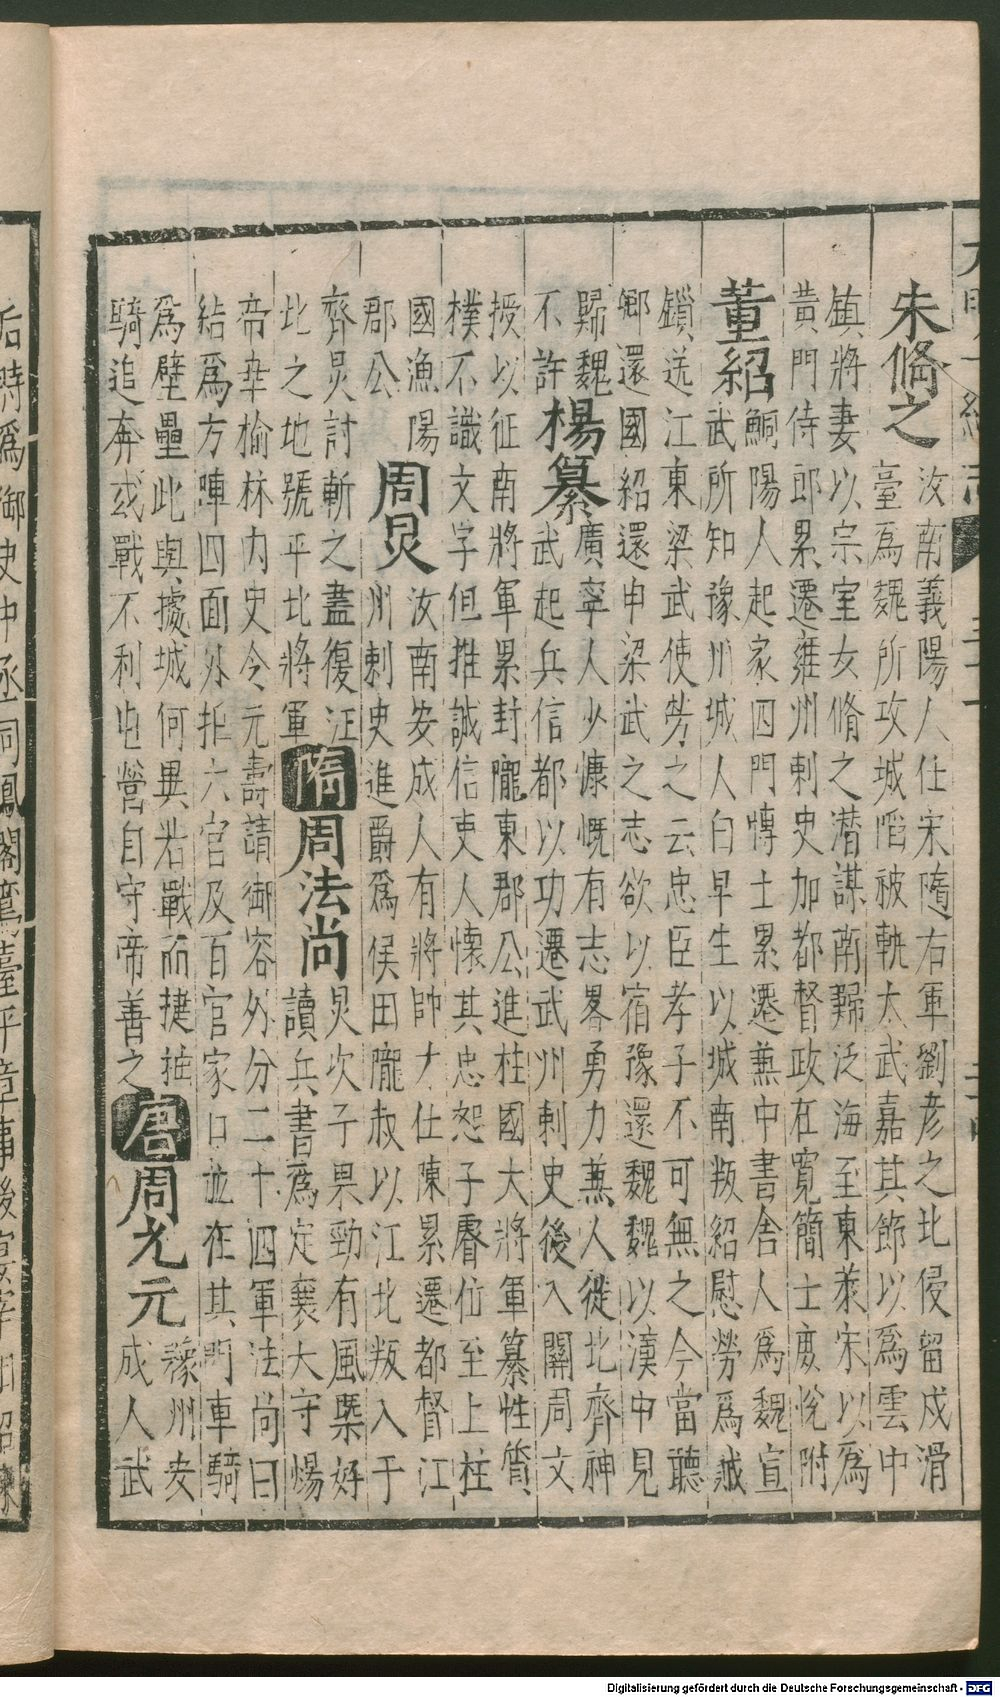 大明一統志
朱脩之
汝南義陽人仕宋隨右軍劉彦之北侵留戍滑
臺爲魏所攻城陷被執太武嘉其節以爲雲中
鎮將妻以宗室女脩之潛謀南歸泛海至東萊宋以爲
黃門侍郎累遷雍州刺史加都督政在寬簡士庶悅附
董紹
鮦陽人起家四門博士累遷兼中書舍人爲魏宣
武所知豫州城人白早生以城南叛紹慰勞爲賊
鎖送江東梁武使勞之云忠臣孝子不可無之今當聽
鄉還國紹還申梁武之志欲以宿豫還魏魏以漢中見
歸魏
不許
楊纂
廣寧人少慷慨有志畧勇力兼人從北齊神
武起兵信都以功遷武州刺史後入關周文
授以征南將軍累封隴東郡公進柱國大將軍纂性質
樸不識文字但推誠信吏人懷其忠恕子睿位至上柱
國漁陽
郡公
周炅
汝南安成人有將帥才仕陳累遷都督江
州刺史進爵爲侯田龍叔以江北叛入于
齊炅討斬之盡復江
北之地號平北將軍
隋
周法尚
炅次子果勁有風槩好
讀兵書爲定襄太守煬
帝幸榆林内史令元壽請御容外分二十四軍法尚曰
結爲方陣四面外拒六宫及百官家口並在其門車騎
爲壁壘此與據城何異若戰而捷推
騎追奔或戰不利屯營自守帝善之
唐
周允元
豫州安
成人武
后時爲御史中丞同鳳閣鸞臺平章事後宴宰相詔
Digitalisierung gefördert durch die Deutsche Forschungsgemeinschaft - DFG